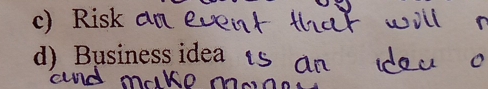 c) Risk an event that will
d) Business idea is an idea o
and make money